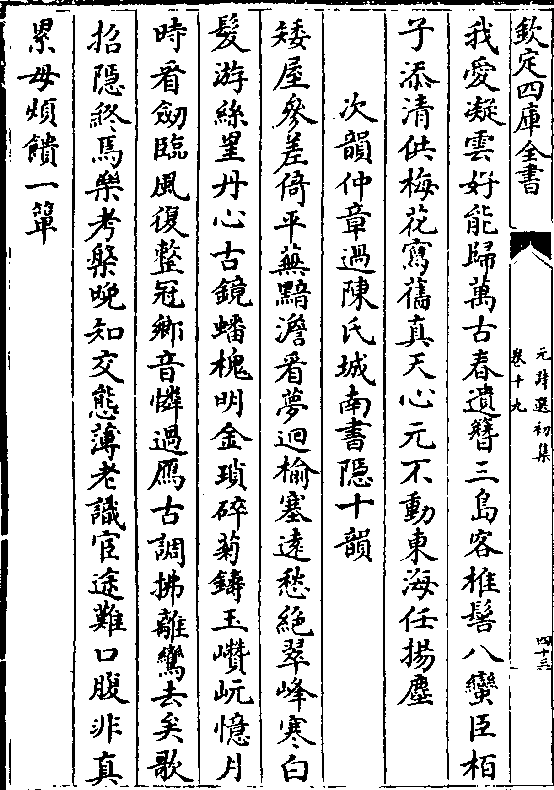 欽定四庫全書
元詩選初集
卷十九
四十三
我愛凝雲好能歸萬古春遺簪三島客椎髻八蠻臣栢
子添清供梅花寫舊真天心元不動東海任揚塵
次韻仲章過陳氏城南書隠十韻
矮屋參差倚平蕪黯澹看夢迴榆塞遠愁絶翠峰寒白
髮游絲罣丹心古鏡蟠槐明金瑣碎菊鑄玉巑岏憶月
時看劒臨風復整冠鄉音憐過鴈古調拂離鸞去矣歌
招隠終焉樂考槃晚知交態薄老識宦途難口腹非真
累毋煩饋一簞